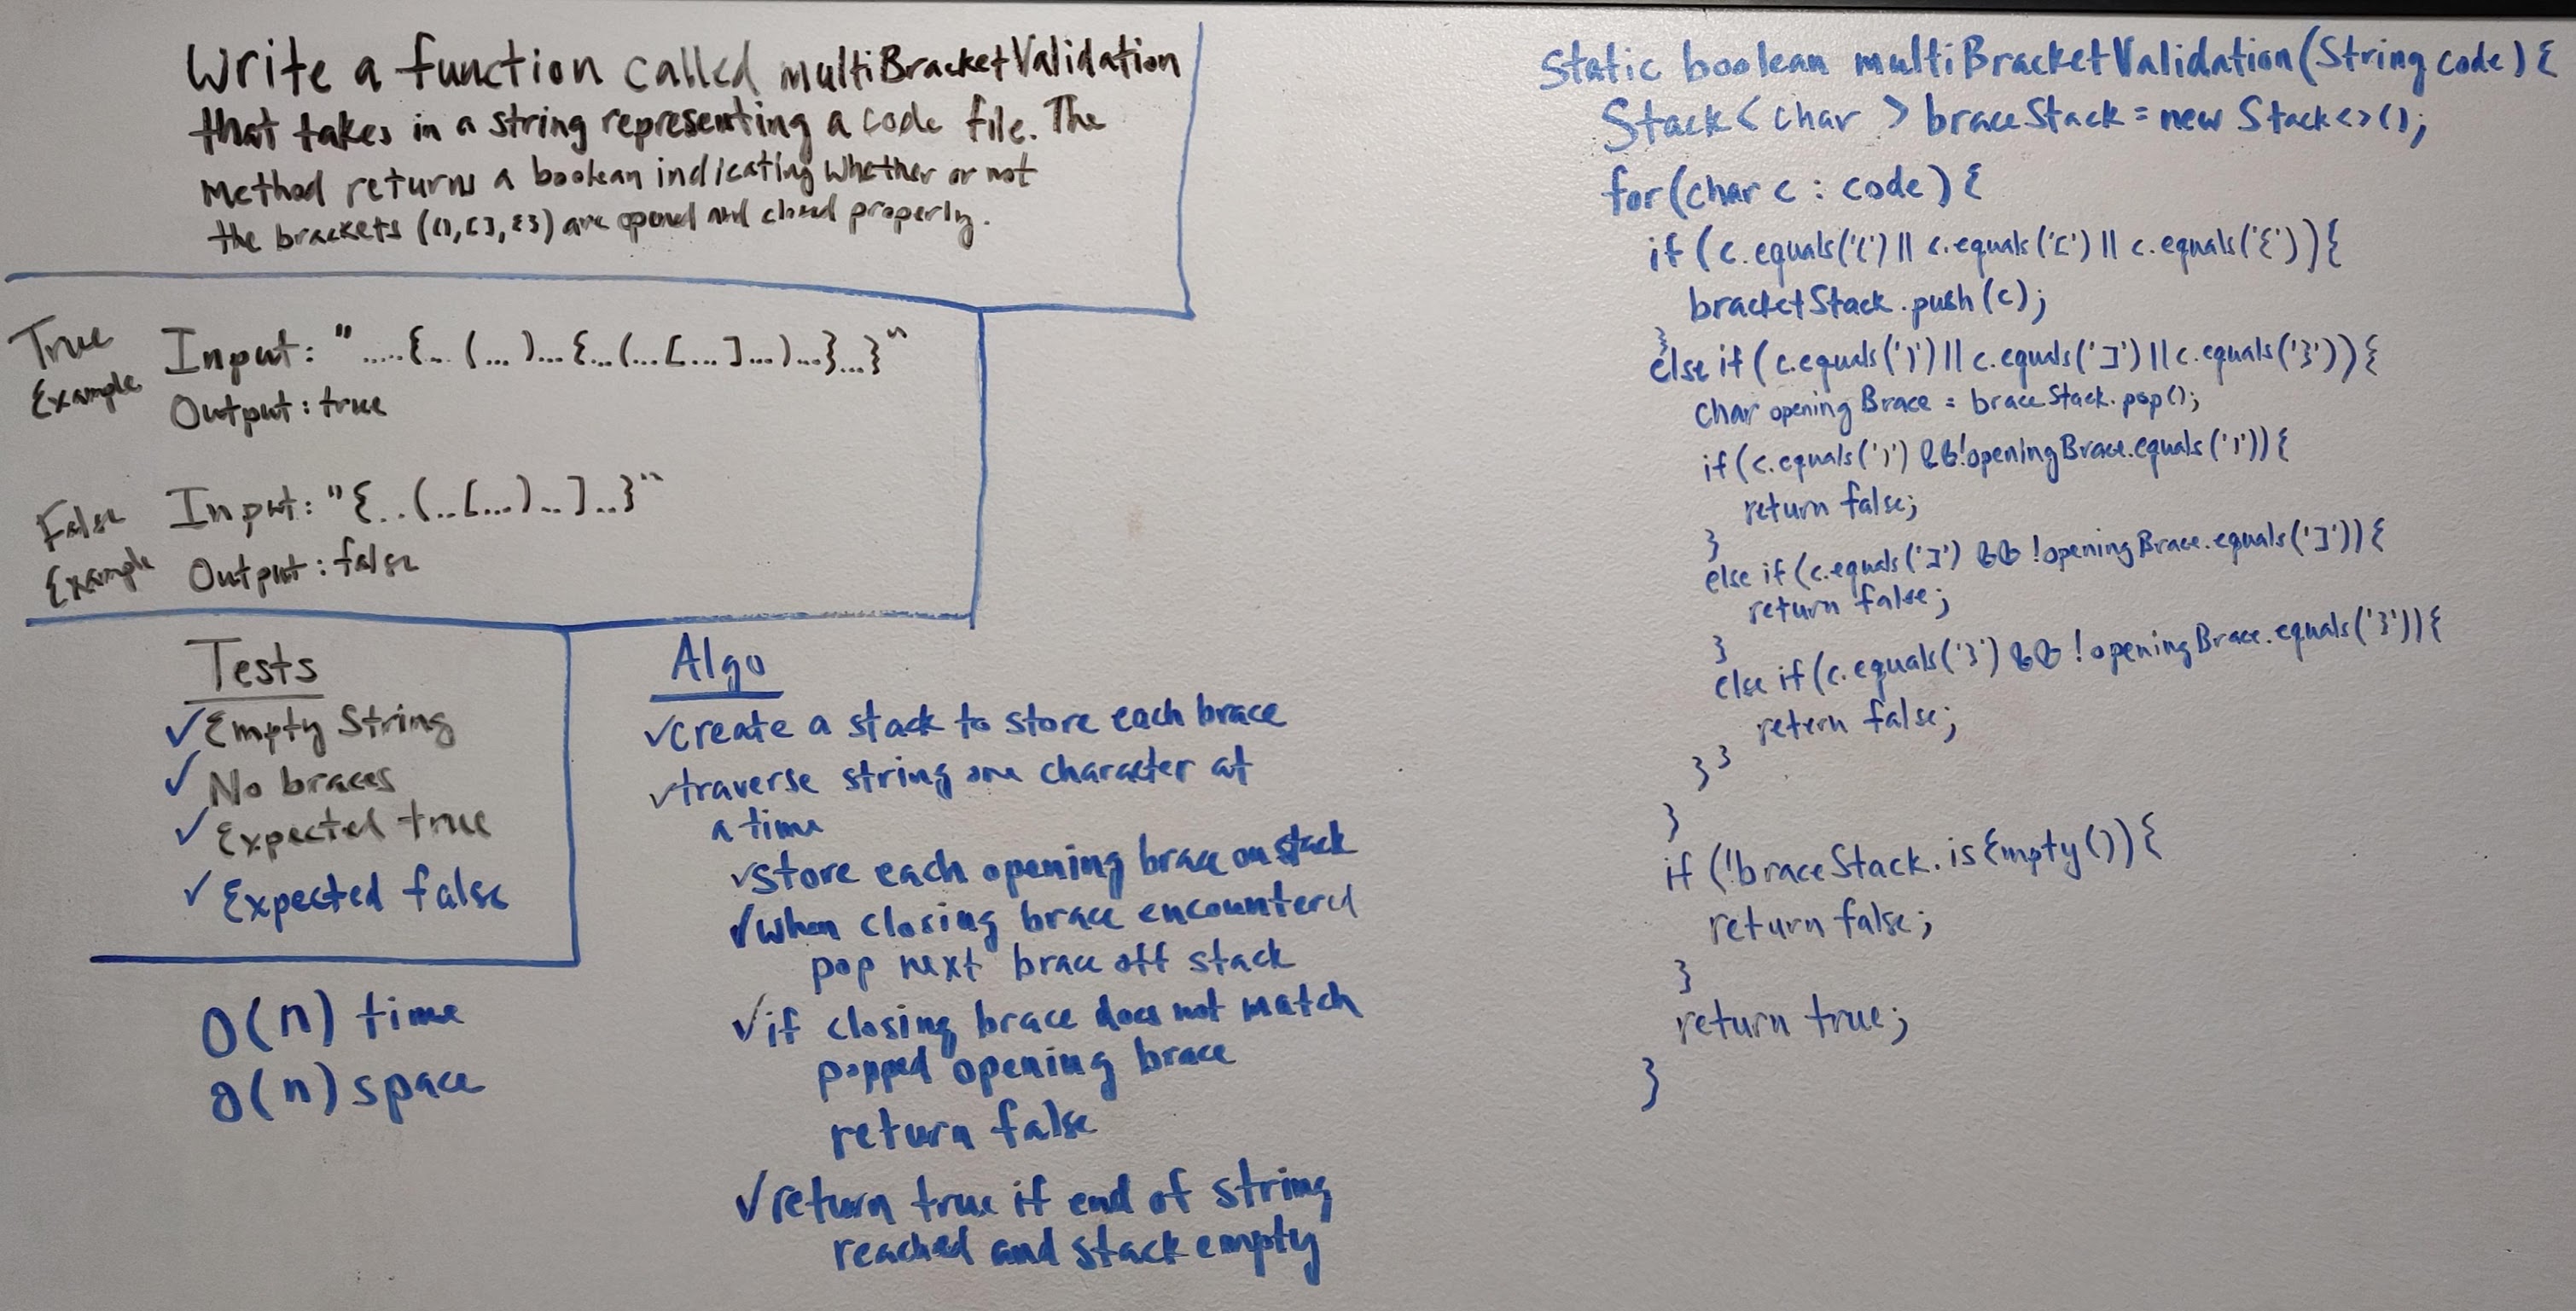 Write a function called multiBracketValidation
that takes in a string representing a code file. The
Method returns a boolean indicating whether or not
the brackets ((),[],{}) are opened and closed properly.
True
Example
Input: ".....{... (... )... {...(...[...]...)...}...}"
Output: true
False
Example
Input: "{..(..[...)..]..}"
Output: false
Tests
✓ Empty String
✓ No braces
✓ Expected true
✓ Expected false
O(n) time
O(n) space
Algo
✓create a stack to store each brace
✓traverse string one character at
a time
✓store each opening brace on stack
✓when closing brace encountered
pop next brace off stack
✓if closing brace does not match
popped opening brace
return false
✓return true if end of string
reached and stack empty
Static boolean multiBracketValidation(String code){
Stack<char> braceStack = new Stack<>();
for(char c : code){
if (c.equals('(') || c.equals('[') || c.equals('{')){
bracketStack.push(c);
}
else if (c.equals(')') || c.equals(']') || c.equals('}')){
Char openingBrace = braceStack.pop();
if (c.equals(')') && !openingBrace.equals(')')){
return false;
}
else if (c.equals(']') && !openingBrace.equals(']')){
return false;
}
else if (c.equals('}') && !openingBrace.equals('}')){
return false;
} }
}
if (!braceStack.isEmpty()){
return false;
}
return true;
}